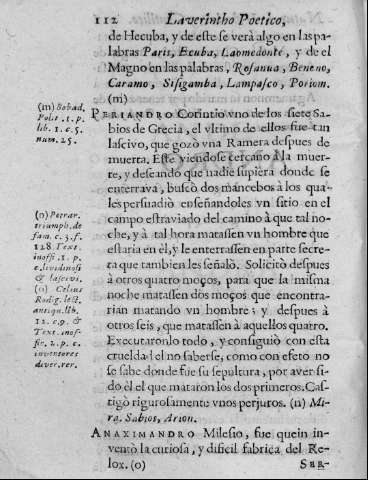 112 Laverintho Poetico,
de Hecuba, y de este se verà algo en las pa-
labras Paris, Ecuba, Laomedonte, y de el
Magno en las palabras, Rosanua, Beneno,
Caramo, Sisigamba, Lampasco, Poriom.
(m)
PERIANDRO Corintio vno de los siete Sa-
bios de Grecia, el vltimo de ellos fue tan
lascivo, que gozò vna Ramera despues de
muerta. Este viendose cercano à la muer-
te, y deseando que nadie supiera donde se
enterrava, buscò dos mancebos à los qua-
les persuadiò enseñandoles vn sitio en el
campo estraviado del camino à que tal no-
che, y à tal hora matassen vn hombre que
estaria en èl, y le enterrassen en parte secre-
ta que tambien les señalò. Solicitò despues
à otros quatro moços, para que la misma
noche matassen dos moços que encontra-
rian matando vn hombre; y despues à
otros seis, que matassen à aquellos quatro.
Executaronlo todo, y consiguiò con esta
crueldad el no saberse, como con efeto no
se sabe donde fue su sepultura, por aver si-
do èl el que mataron los dos primeros. Cas-
tigò rigurosamente vnos perjuros. (n) Mi-
ra. Sabios, Arion.
ANAXIMANDRO Milesio, fue quein in-
ventò la curiosa, y dificil fabrica del Re-
lox. (o) SER-
(m) Bobad.
Polit. 1. p.
lib. 1. c. 5.
num. 25.
(n) Petrar.
triumph. de
fam. c. 3. f.
128. Text.
inoffi. 1. p.
c. lividinosi
& lascivi.
(o) Celius
Rodig. lect.
antiqu. lib.
12. c. 9. &
Text. inof-
fic. 2. p. c.
inventores
diver. rer.